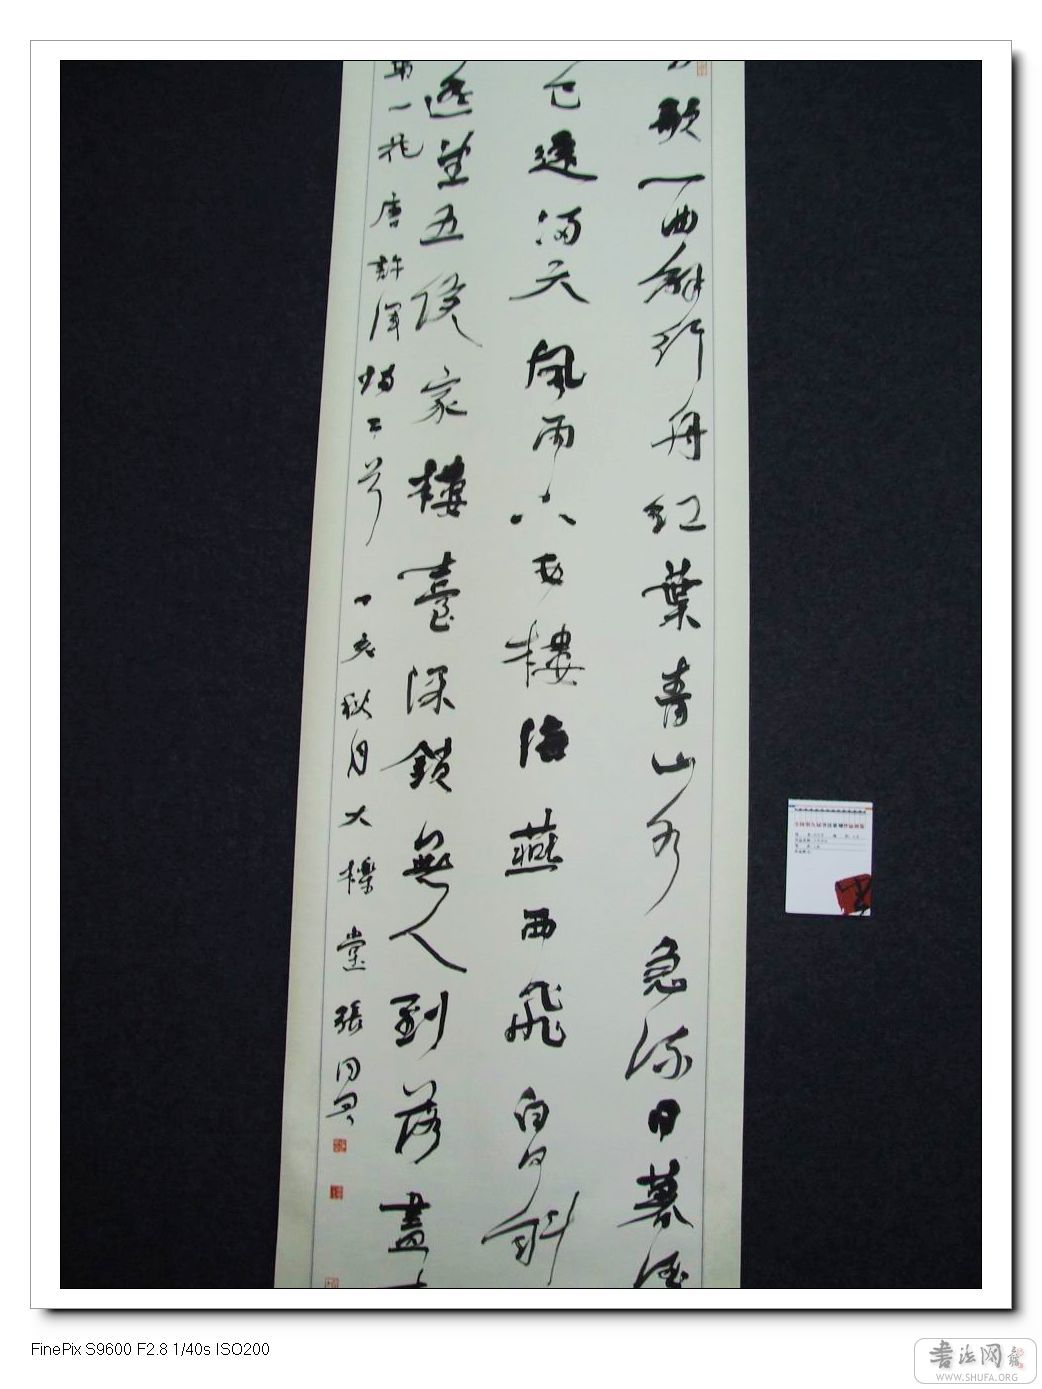 歌一曲解行舟紅葉青山水急流日暮酒
已遠滿天風雨下西樓海燕西飛白日斜
遙望五侯家樓臺深鎖無人到落盡
第一花唐許渾詩二首丁亥秋月大櫟堂張同
FinePix S9600 F2.8 1/40s ISO200
書法网
WWW.SHUFA.ORG